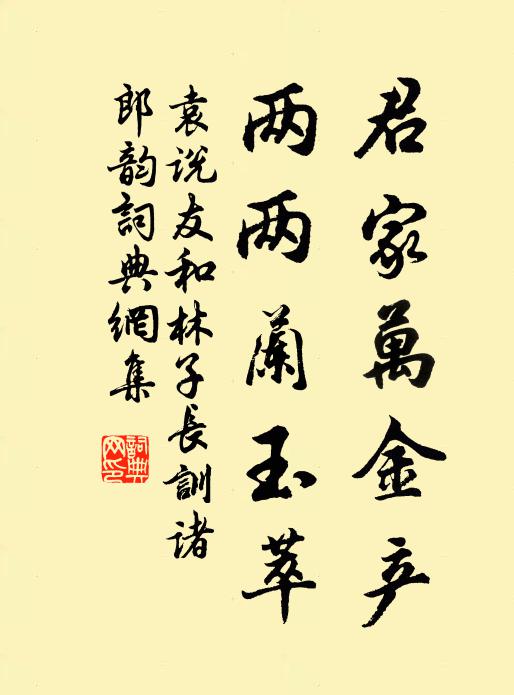 君家萬金产
两两蘭玉萃
袁说友和林子長訓诸
郎韵詞典網集
詞典网印